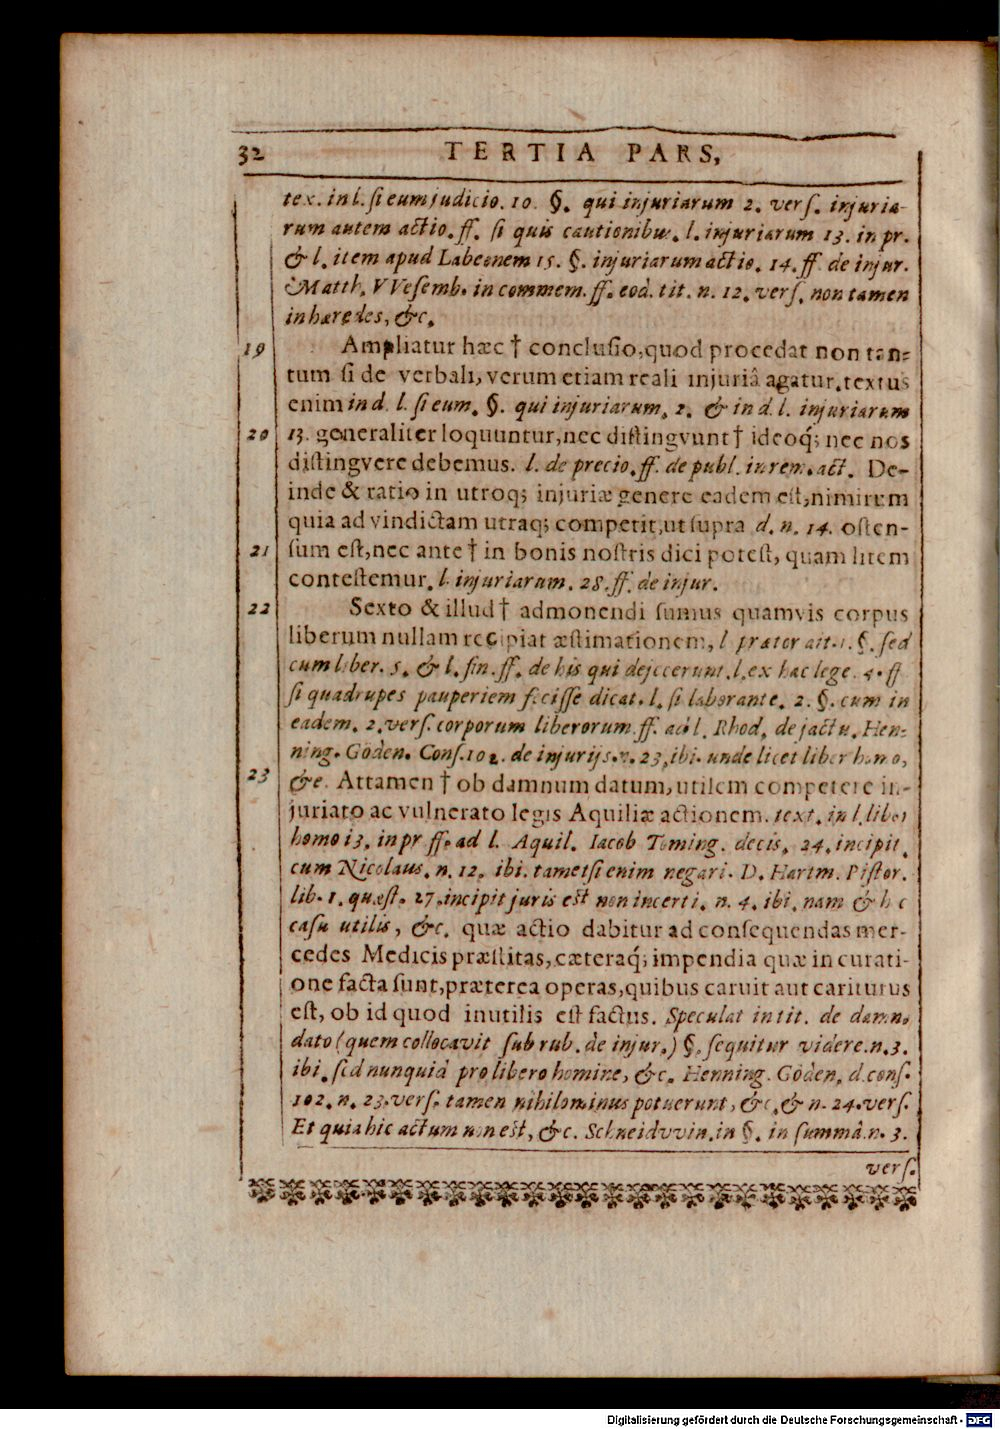 32 TERTIA PARS,
tex. in l. ſi eum judicio. 10. §. qui injuriarum 2. verſ. injuria-
rum autem actio. ff. ſi quis cautionibus. l. injuriarum 13. in pr.
& l. item apud Labeonem 15. §. injuriarum actio. 14. ff. de injur.
Matth. VVeſemb. in commem. ff. eod. tit. n. 12. verſ. non tamen
in hæredes, &c.
19 Ampliatur hæc † concluſio, quod procedat non tan-
tum ſi de verbali, verum etiam reali injuriâ agatur. textus
enim in d. l. ſi eum. §. qui injuriarum, 2. & in d. l. injuriarum
20 13. generaliter loquuntur, nec diſtingvunt † ideoq́; nec nos
diſtingvere debemus. l. de precio. ff. de publ. in rem. act. De-
inde & ratio in utroq; injuriæ genere eadem eſt, nimirum
quia ad vindictam utraq; competit, ut ſupra d. n. 14. oſten-
21 ſum eſt, nec ante † in bonis noſtris dici poteſt, quam litem
conteſtemur. l. injuriarum. 28. ff. de injur.
22 Sexto & illud † admonendi ſumus quamvis corpus
liberum nullam recipiat æſtimationem, l. prætor ait. 1. §. ſed
cum liber. 5. & l. fin. ff. de his qui dejecerunt. l. ex hac lege. 4. ff
ſi quadrupes pauperiem feciſſe dicat. l. ſi laborante. 2. §. cum in
eadem. 2. verſ. corporum liberorum. ff. ad l. Rhod. de jactu. Hen-
ning. Göden. Conſ. 102. de injurijs. n. 23, ibi. unde licet liber homo,
23 &c. Attamen † ob damnum datum, utilem competere in-
juriato ac vulnerato legis Aquiliæ actionem. text. in l. liber
homo 13. in pr ff. ad l. Aquil. Iacob Toming. decis. 24. incipit.
cum Nicolaus. n. 12. ibi. tametſi enim negari. D. Hartm. Piſtor.
lib. 1. quæſt. 27. incipit juris est non incerti. n. 4. ibi. nam & h c
caſu utilis, &c. quæ actio dabitur ad conſequendas mer-
cedes Medicis præſtitas, cæteraq́; impendia quæ in curati-
one facta ſunt, præterea operas, quibus caruit aut cariturus
eſt, ob id quod inutilis eſt factus. Speculat in tit. de damno
dato (quem collocavit ſub rub. de injur.) §. ſequitur videre. n. 3.
ibi. ſed nunquid pro libero homine, &c. Henning. Göden. d. conſ.
102. n. 23. verſ. tamen nihilominus potuerunt, &c. & n. 24. verſ.
Et quia hic actum non est, &c. Schneidvvin. in §. in ſummâ. n. 3.
verſ.
Digitalisierung gefördert durch die Deutsche Forschungsgemeinschaft - DFG